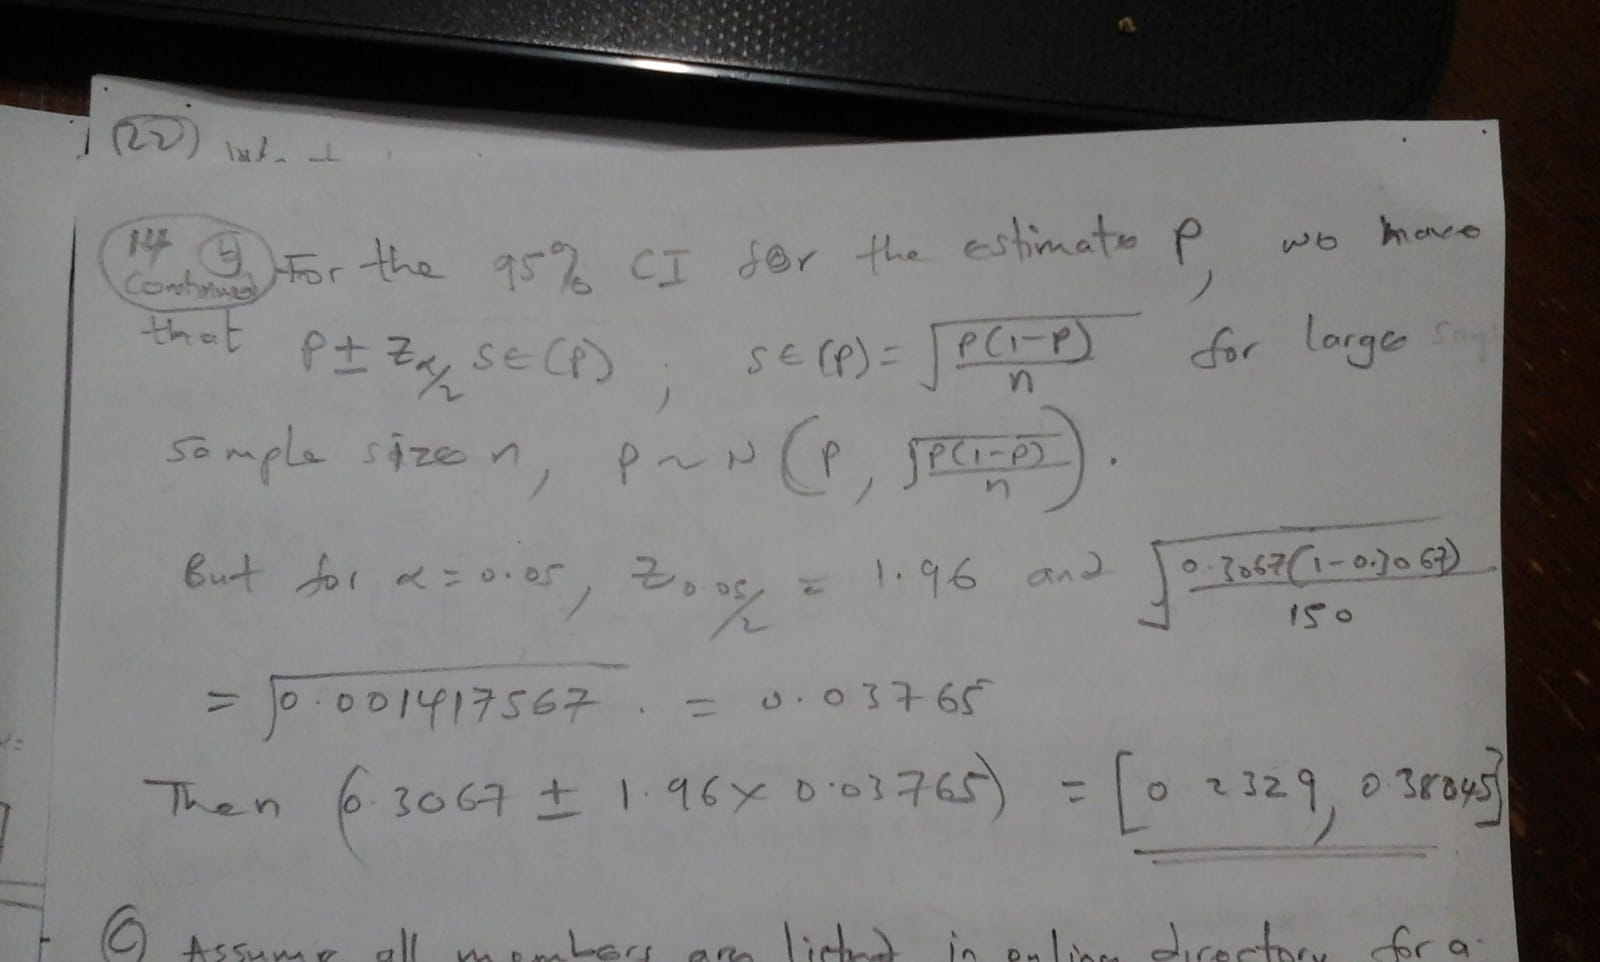 (22)
14 b For the 95% CI for the estimate p, we have
Continued
that p ± Z_{α/2} SE(p) ; SE(p) = √(p(1-p)/n) for large
sample size n, p ~ N(p, √(p(1-p)/n)).
But for α = 0.05, Z_{0.05/2} = 1.96 and √(0.3067(1-0.3067)/150)
= √0.001417567 . = 0.03765
Then (0.3067 ± 1.96 × 0.03765) = [0.2329, 0.38045]
(C) Assume all members are listed in online directory for a